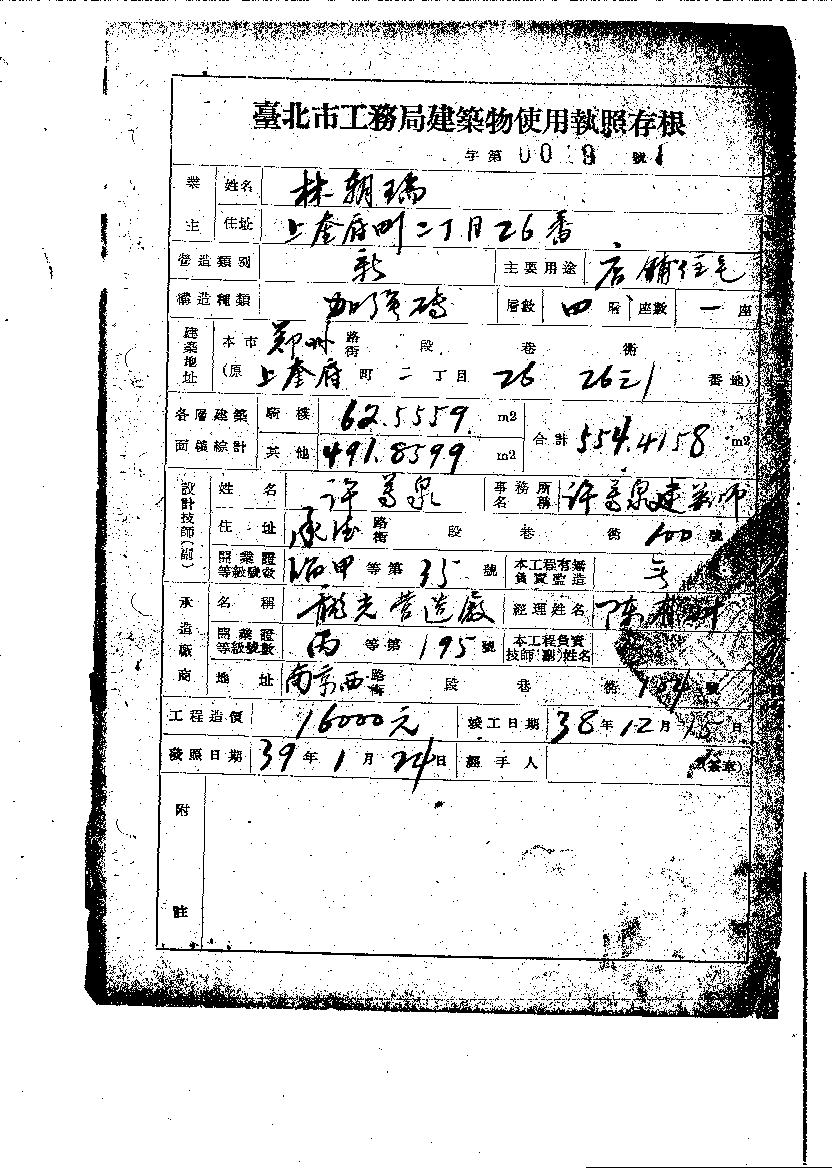 臺北市工務局建築物使用執照存根
字第 009 號
業主 姓名 林朝瑞
住址 上奎府町二丁目26番
營造類別 新 主要用途 店鋪住宅
構造種類 加強磚 層數 四層 座數 一座
建築地址 本市 鄭州 路街 段 巷 衖
(原 上奎府町 二丁目 26 26之1 番地)
各層建築面積綜計 騎樓 62.5559 m2 合計 554.4158 m2
其他 491.8599 m2
設計技師(副) 姓名 許 泉 事務所名稱 許 泉建築師
住址 承德 路街 段 巷 衖 100 號
開業證等級號數 甲等第 35 號 本工程有無負責監造
承造廠商 名稱 光營造廠 經理姓名 陈
開業證等級號數 丙等第 195 號 本工程負責技師(副)姓名
地址 南京西 路街 段 巷 衖 號
工程造價 16000元 竣工日期 38年12月15日
發照日期 39年1月24日 經手人 (簽章)
附註